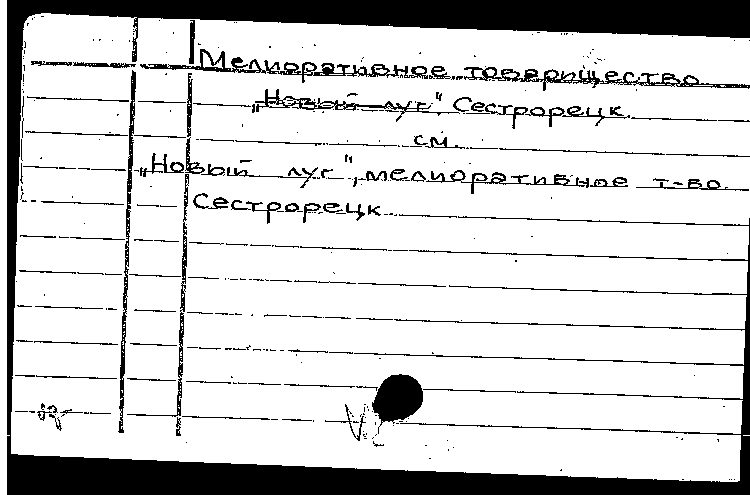 Мелиоративное товарищество
„Новый луг". Сестрорецк
см.
„Новый луг", мелиоративное т-во
Сестрорецк